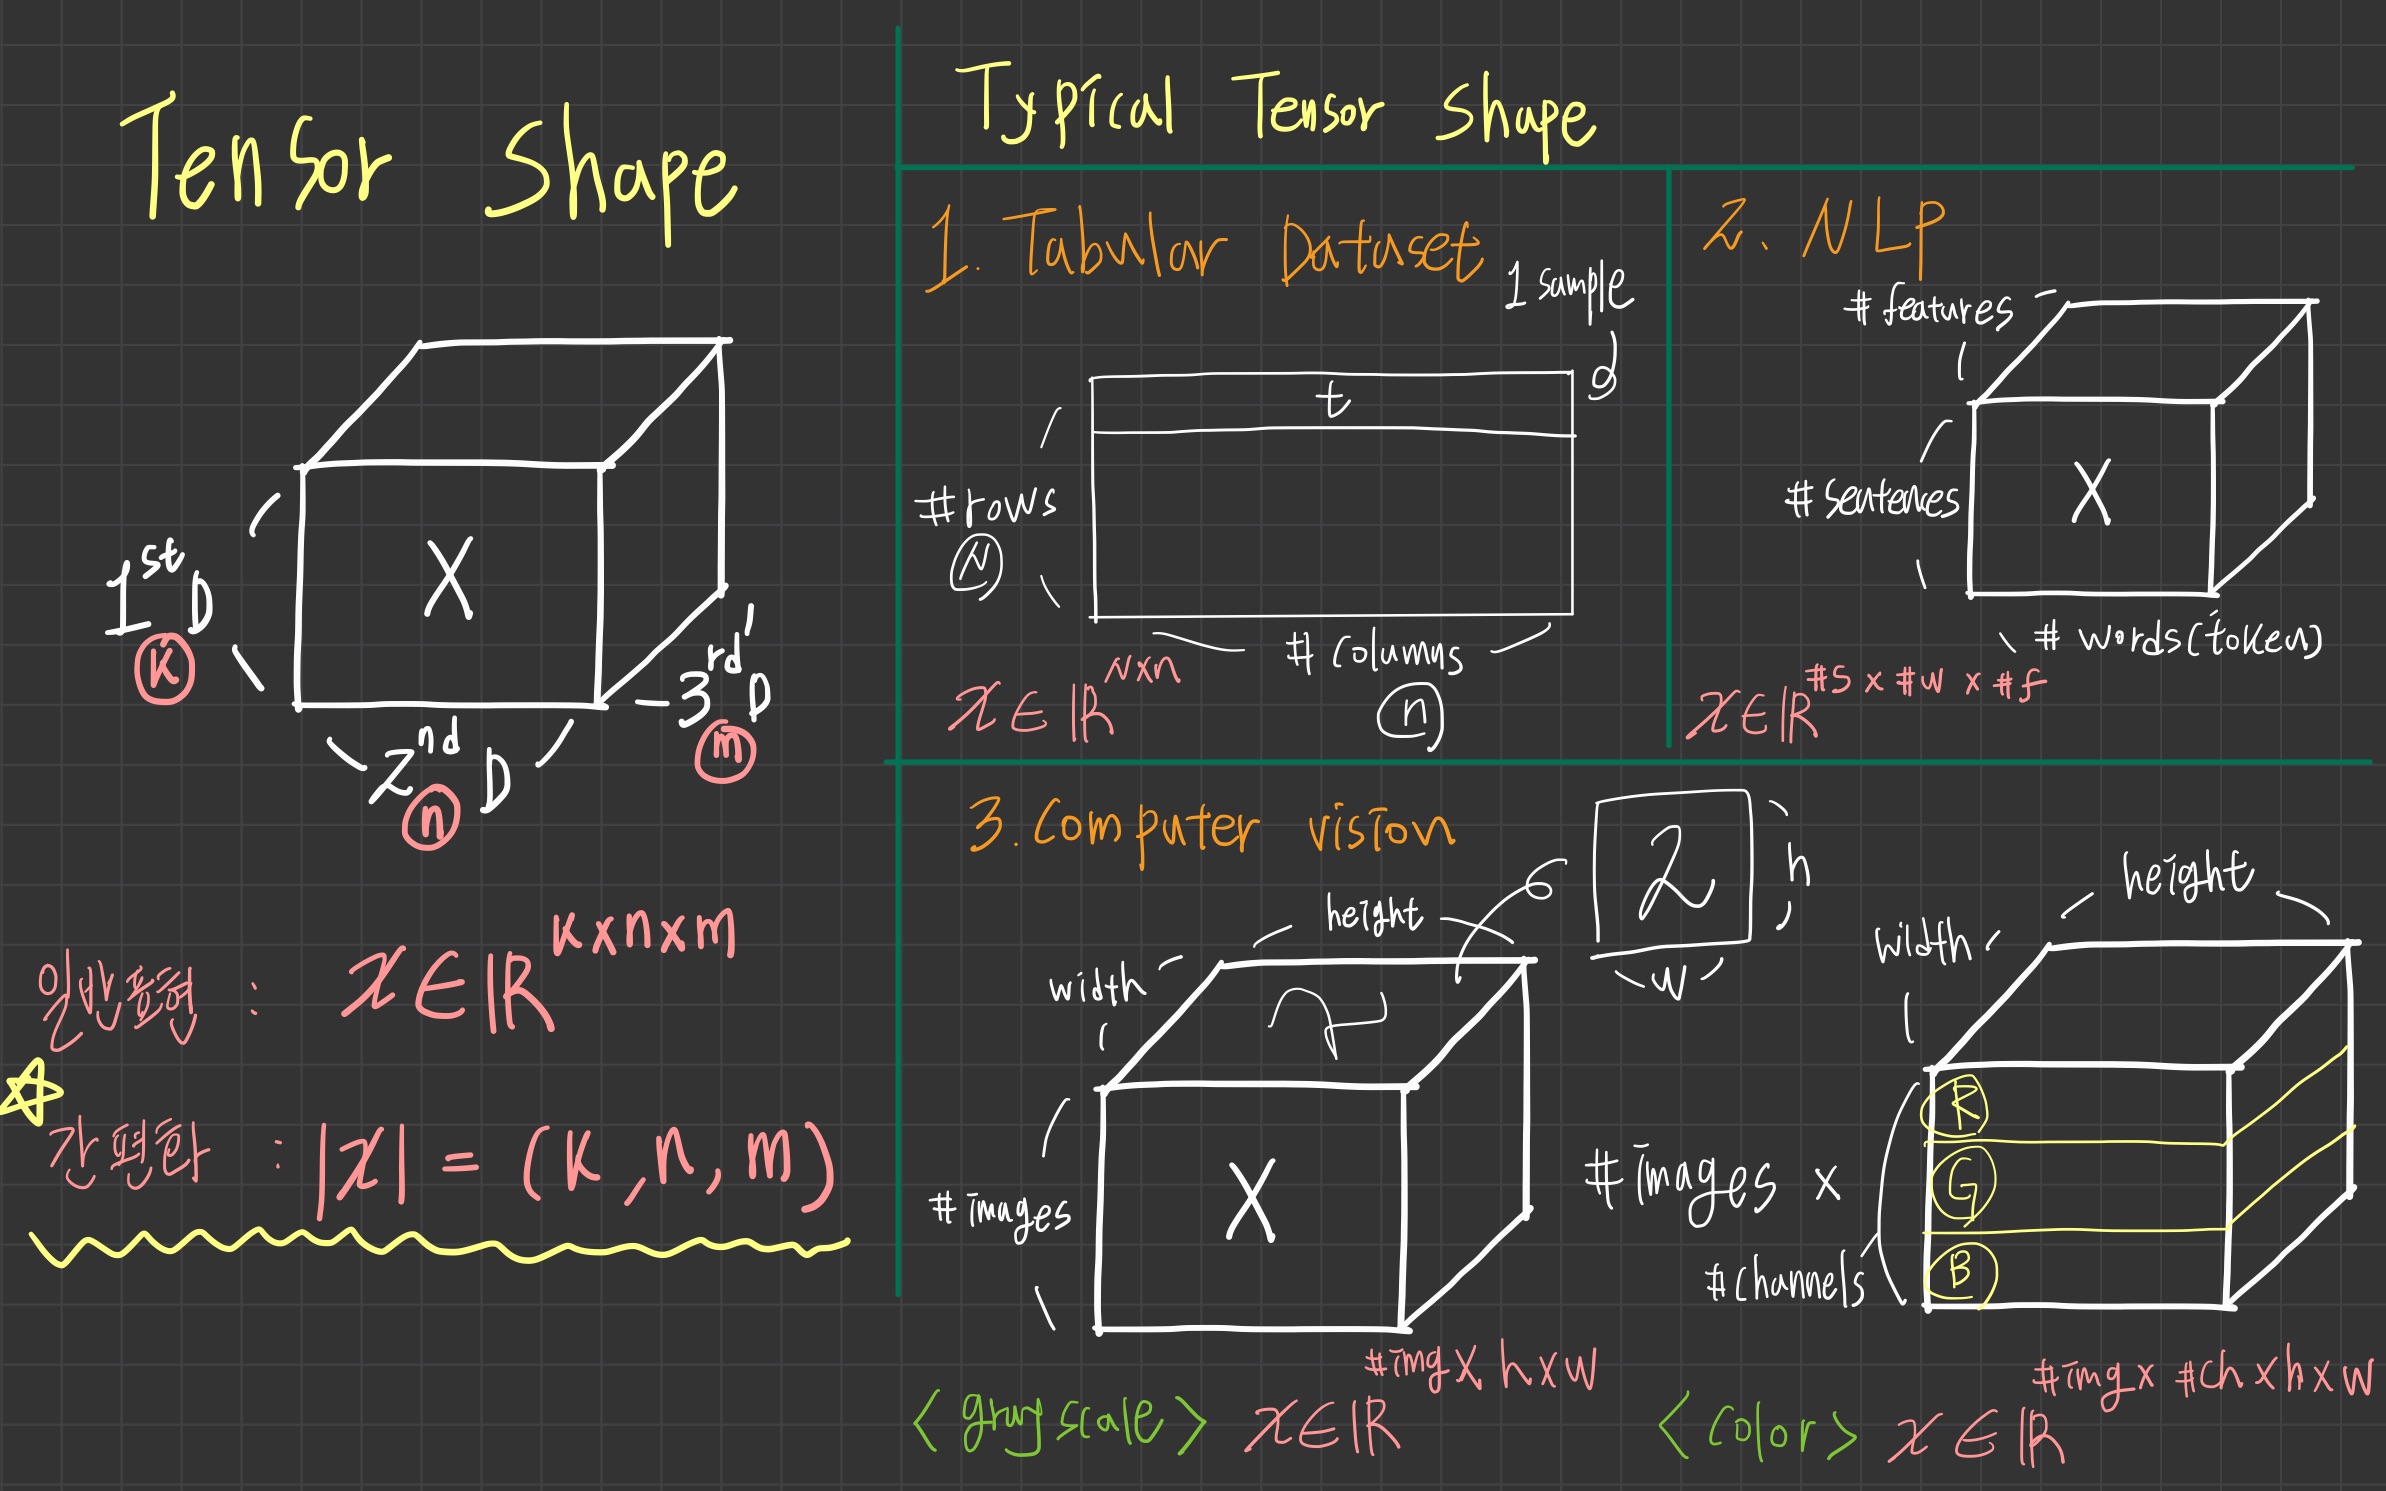 Tensor Shape
X
1st D
k
2nd D
n
3rd D
m
일반표현 : X∈ℝ^k×n×m
간편한 : |X| = (k, n, m)
Typical Tensor Shape
1. Tabular Dataset
1 sample
t
#rows
N
# Columns
n
X∈ℝ^N×n
2. NLP
# features
# sentences
X
# words(token)
X∈ℝ^#s × #w × #f
3. Computer vision
2
h
w
height
width
2
X
#images
<gray scale> X∈ℝ^#img × h×w
height
width
R
G
B
#images ×
#channels
<color> X∈ℝ^#img × #ch×h×w